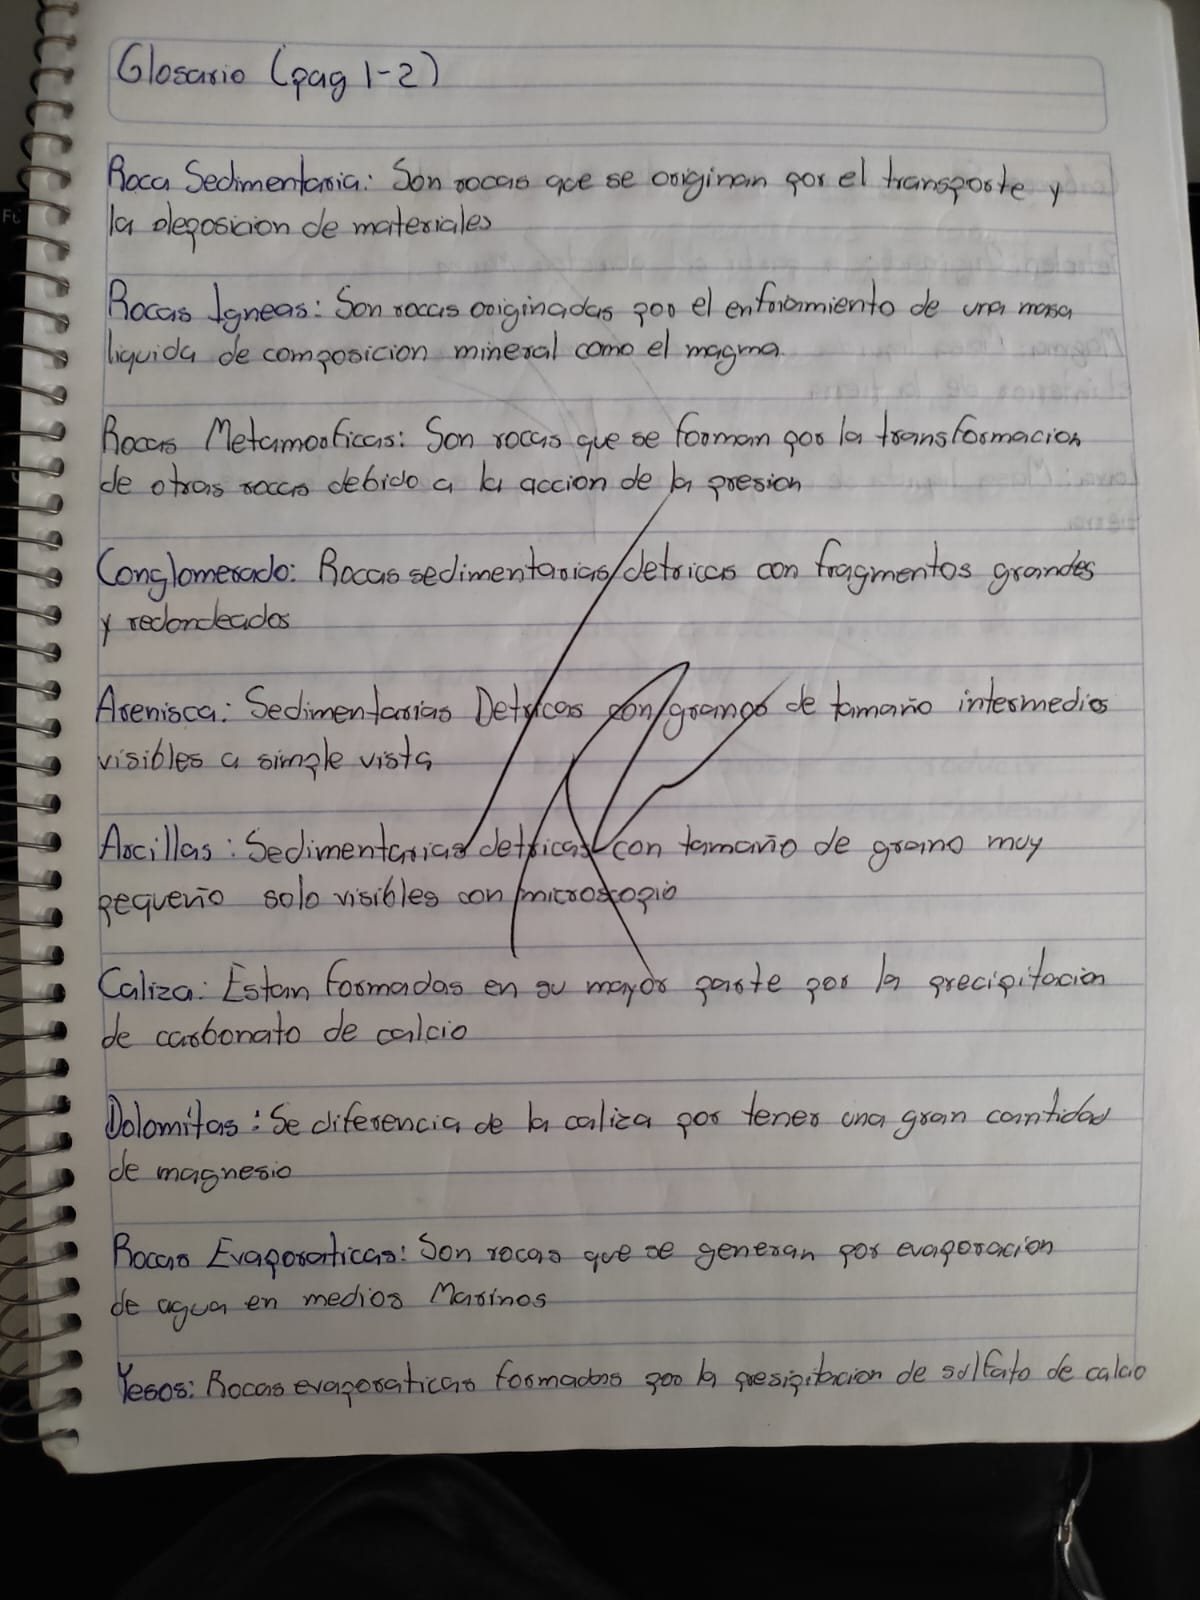 Glosario (pag 1-2)
Roca Sedimentaria: Son rocas que se originan por el transporte y
la deposicion de materiales
Rocas Igneas: Son rocas originadas por el enfriamiento de una masa
liquida de composicion mineral como el magma.
Rocas Metamorficas: Son rocas que se forman por la transformacion
de otras rocas debido a la accion de la presion
Conglomerado: Rocas sedimentarias detricas con fragmentos grandes
y redondeados
Arenisca: Sedimentarias Detricas con granos de tamaño intermedio
visibles a simple vista
Arcillas: Sedimentarias detricas con tamaño de grano muy
pequeño solo visibles con microscopio
Caliza: Estan formadas en su mayor parte por la precipitacion
de carbonato de calcio
Dolomitas: Se diferencia de la caliza por tener una gran cantidad
de magnesio
Rocas Evaporaticas: Son rocas que se generan por evaporacion
de agua en medios Marinos
Yesos: Rocas evaporaticas formados por la presipitacion de sulfato de calcio